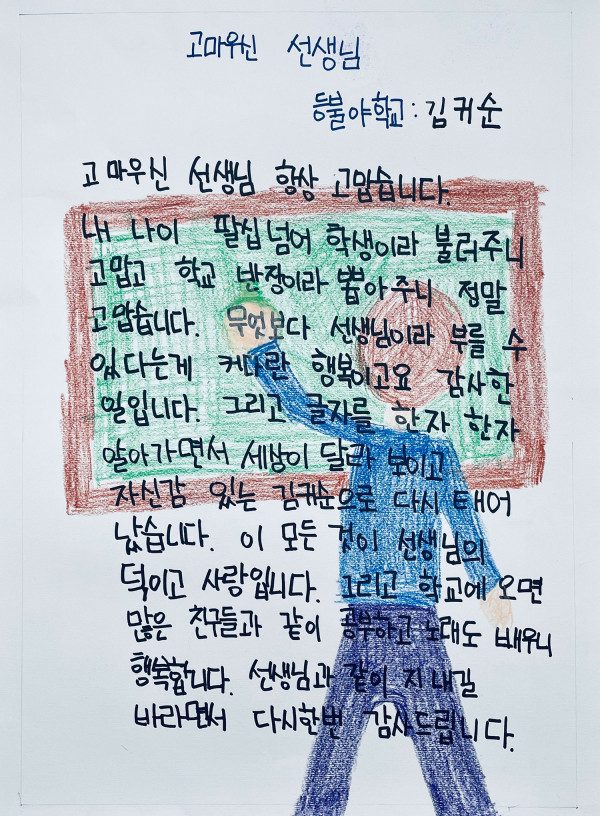 고마우신 선생님
등불야학교: 김귀순
고마우신 선생님 항상 고맙습니다.
내 나이 팔십넘어 학생이라 불러주니
고맙고 학교 반장이라 뽑아주니 정말
고맙습니다. 무엇보다 선생님이라 부를 수
있다는게 커다란 행복이고요 감사한
일입니다. 그리고 글자를 한자 한자
알아가면서 세상이 달라 보이고
자신감 있는 김귀순으로 다시 태어
났습니다. 이 모든 것이 선생님의
덕이고 사랑입니다. 그리고 학교에 오면
많은 친구들과 같이 공부하고 노래도 배우니
행복합니다. 선생님과 같이 지내길
바라면서 다시한번 감사드립니다.